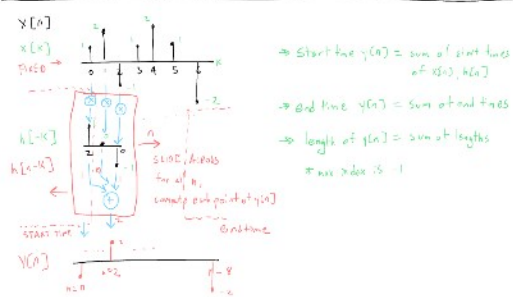 X[n]
2
2
X[k]
1
1
1
FIXED →
k
0 1 2 3 4 5 6
-1
-2
h[-k]
h[n-k]
2
0
-1
n
SLIDE, ACROSS
for all n,
compute each point of y[n]
START TIME
End time
y[n]
n=0
n=2
-8
-2
→ Start time y[n] = sum of start times
of x[n], h[n]
→ end time y[n] = sum of end times
→ length of y[n] = sum of lengths
-1